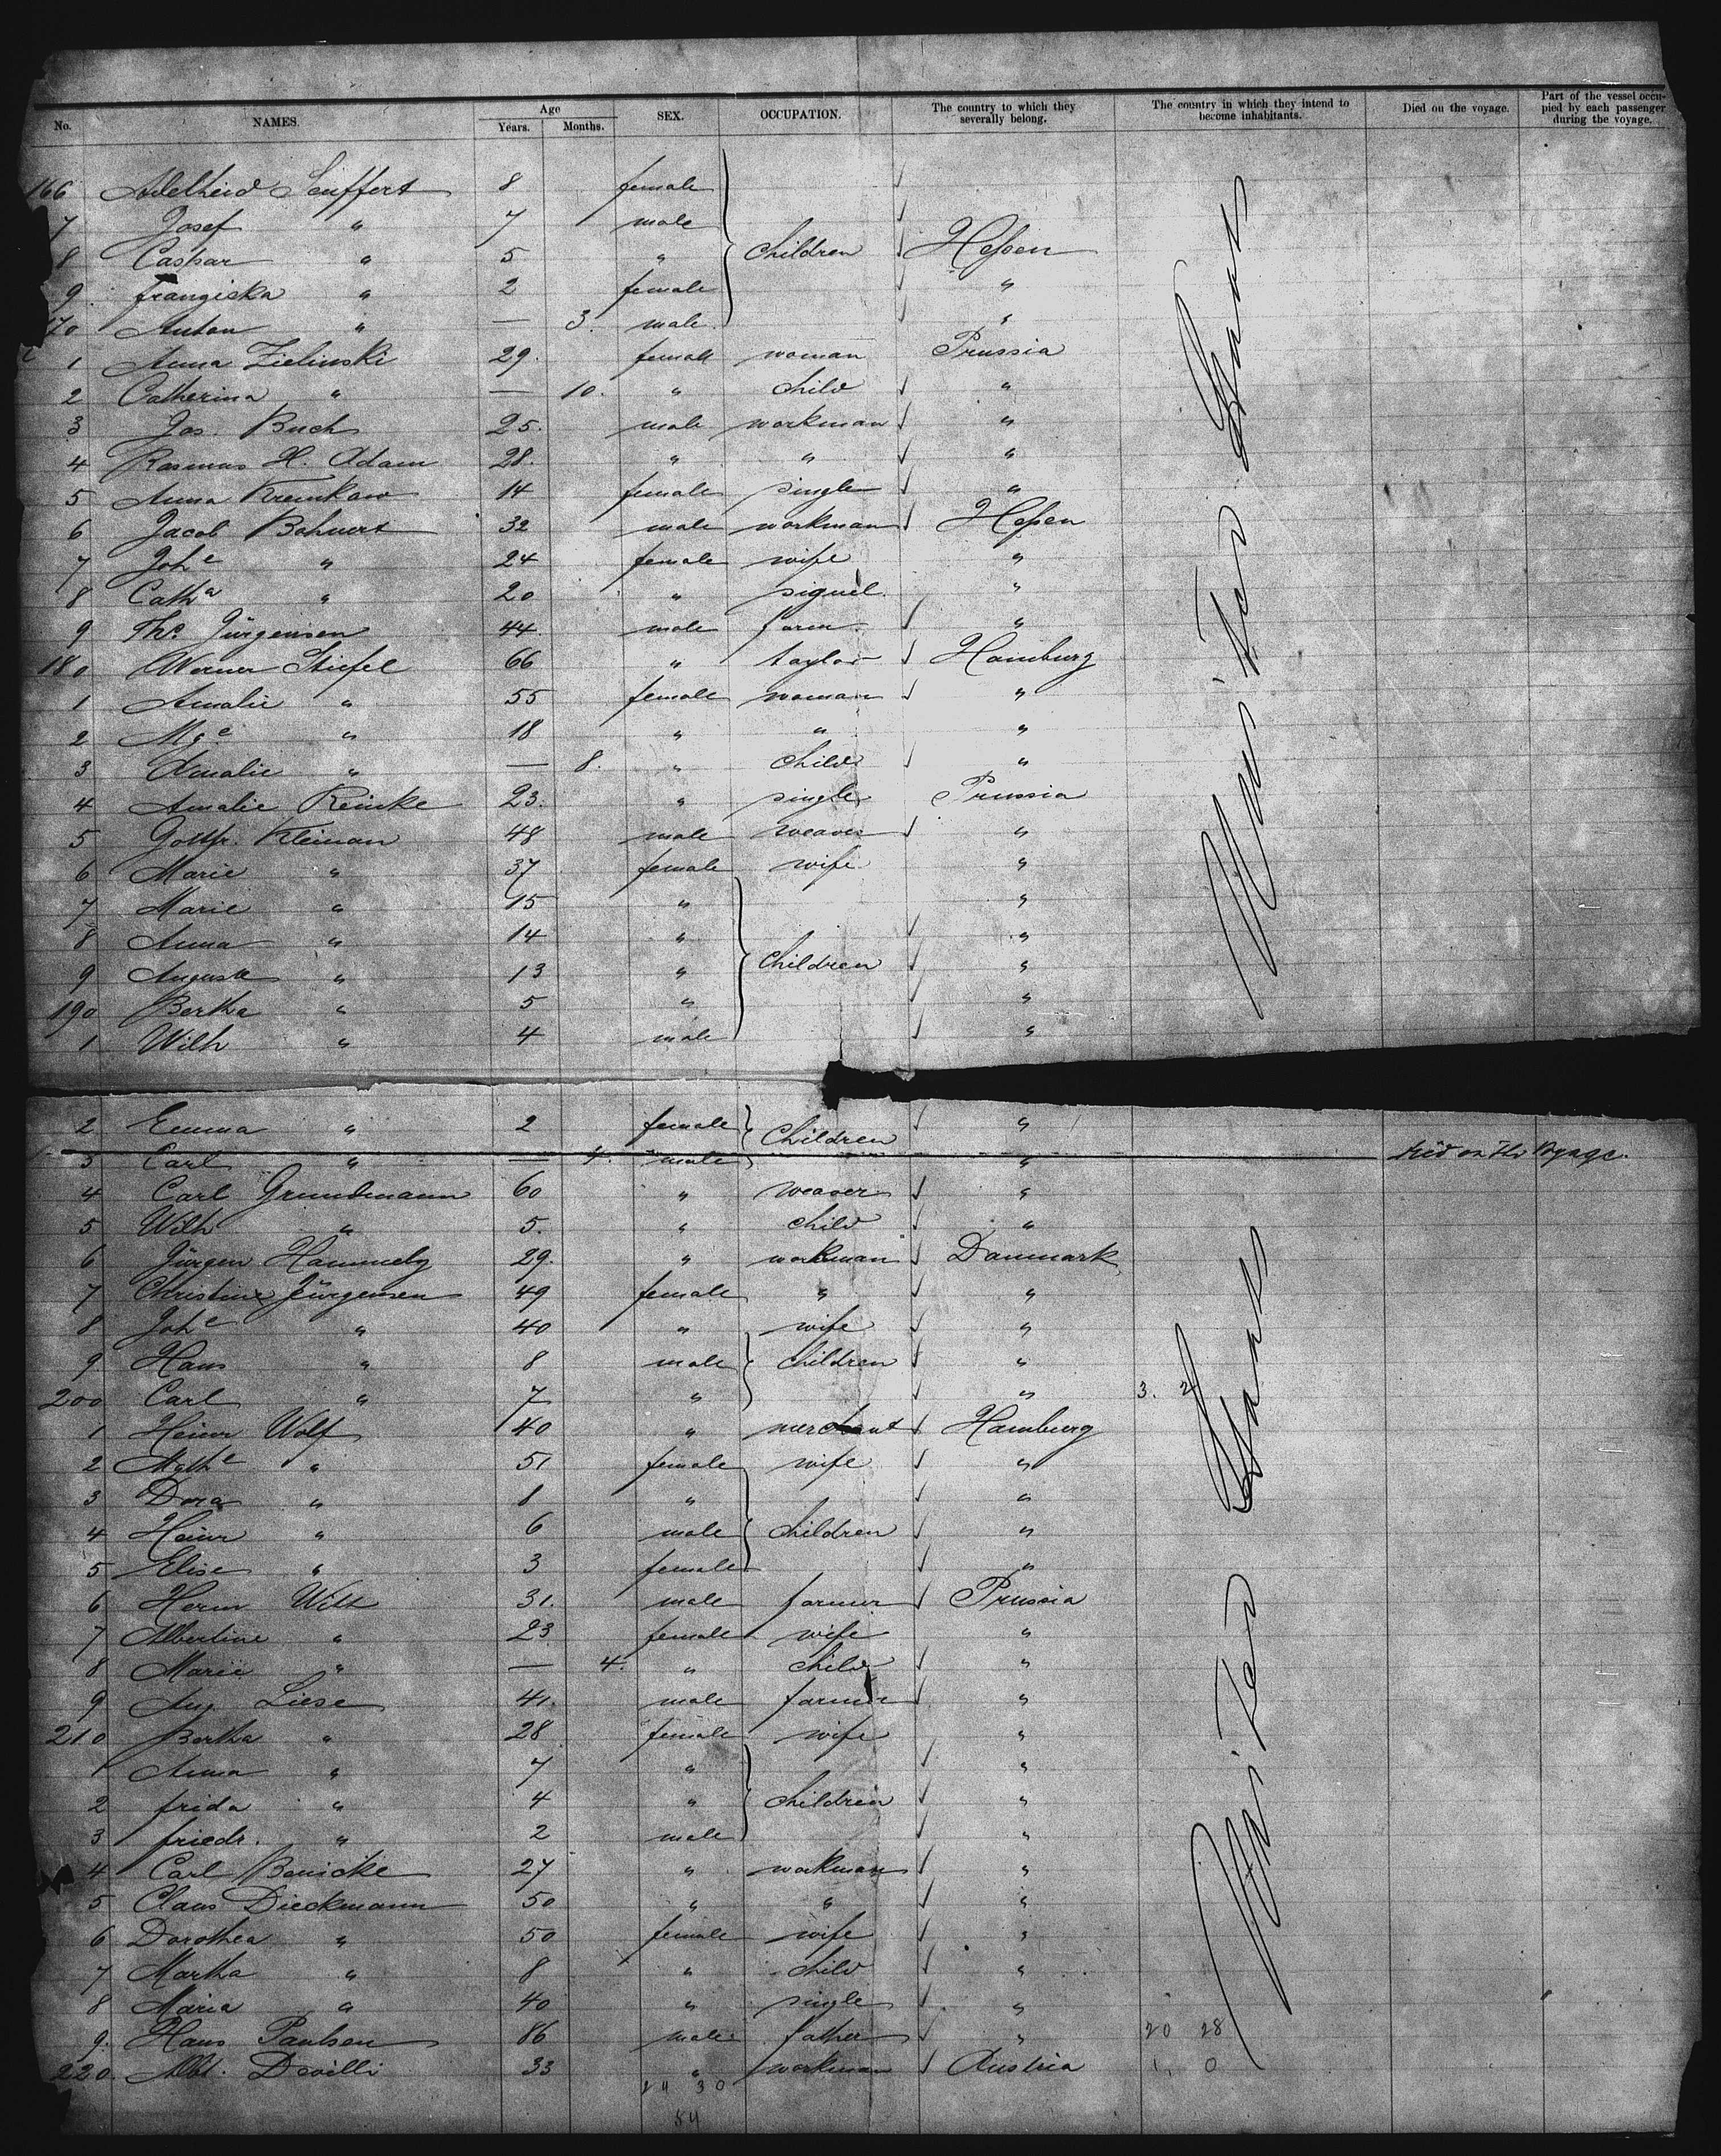 No. NAMES. Age Years. Months. SEX. OCCUPATION. The country to which they severally belong. The country in which they intend to become inhabitants. Died on the voyage. Part of the vessel occupied by each passenger during the voyage.
166 Adelheid Seuffert 8 female
7 Josef " 7 male
8 Caspar " 5 " Children Hessen
9. Franziska " 2 female "
170 Anton " — 3. male "
1 Anna Zielinski 29. female woman Prussia
2 Catherina " — 10. " child "
3 Jos. Buch 25. male workman "
4 Rasmus H. Adam 28. " " "
5 Anna Kremkow 14 female single "
6 Jacob Bohnert 32 male workman Hessen
7 Johe " 24 female wife "
8 Catha " 20 " signel "
9 Ths Jürgensen 44 male farm "
180 Werner Stiefel 66 " taylor Hamburg
1 Amalie " 55 female woman "
2 Mge " 18 " " "
3 Amalie " — 8. " child "
4 Amalie Reinke 23. " single Prussia
5 Gottfr. Kleinan 48 male weaver "
6 Marie " 37 female wife "
7 Marie " 15 " "
8 Anna " 14 " "
9 Auguste " 13 " Children "
190 Bertha " 5 " "
1 Wilh " 4 male "
2 Emma " 2 female Children "
3 Carl " — 4. male " died on the Voyage.
4 Carl Grundmann 60 " weaver "
5 Wilh " 5. " child "
6 Jürgen Hammely 29. " workman Danmark
7 Christine Jürgensen 49 female " "
8 Johe " 40 " wife "
9 Hans " 8 male Children "
200 Carl " 7 " " 3. 2
1 Heinr Wolf 40 " merchant Hamburg
2 Mathe " 51 female wife "
3 Dora " 8 " "
4 Heinr " 6 male Children "
5 Elise " 3 female "
6 Herm Witt 31. male farmer Prussia
7 Albertine " 23 female wife "
8 Marie " — 4. " child "
9 Aug. Liese 41. male farmer "
210 Bertha " 28 female wife "
1 Anna " 7 " "
2 Frida " 4 " Children "
3 Friedr. " 2 male "
4 Carl Bönicke 27 " workman "
5 Claus Dieckmann 50 " " "
6 Dorothea " 50 female wife "
7 Martha " 8 " child "
8 Maria " 40 " single "
9. Hans Paulsen 86 male father " 20 28
220. Albt. Devilli 33 " workman Austria 1. 0
24 30
54
United States
United States